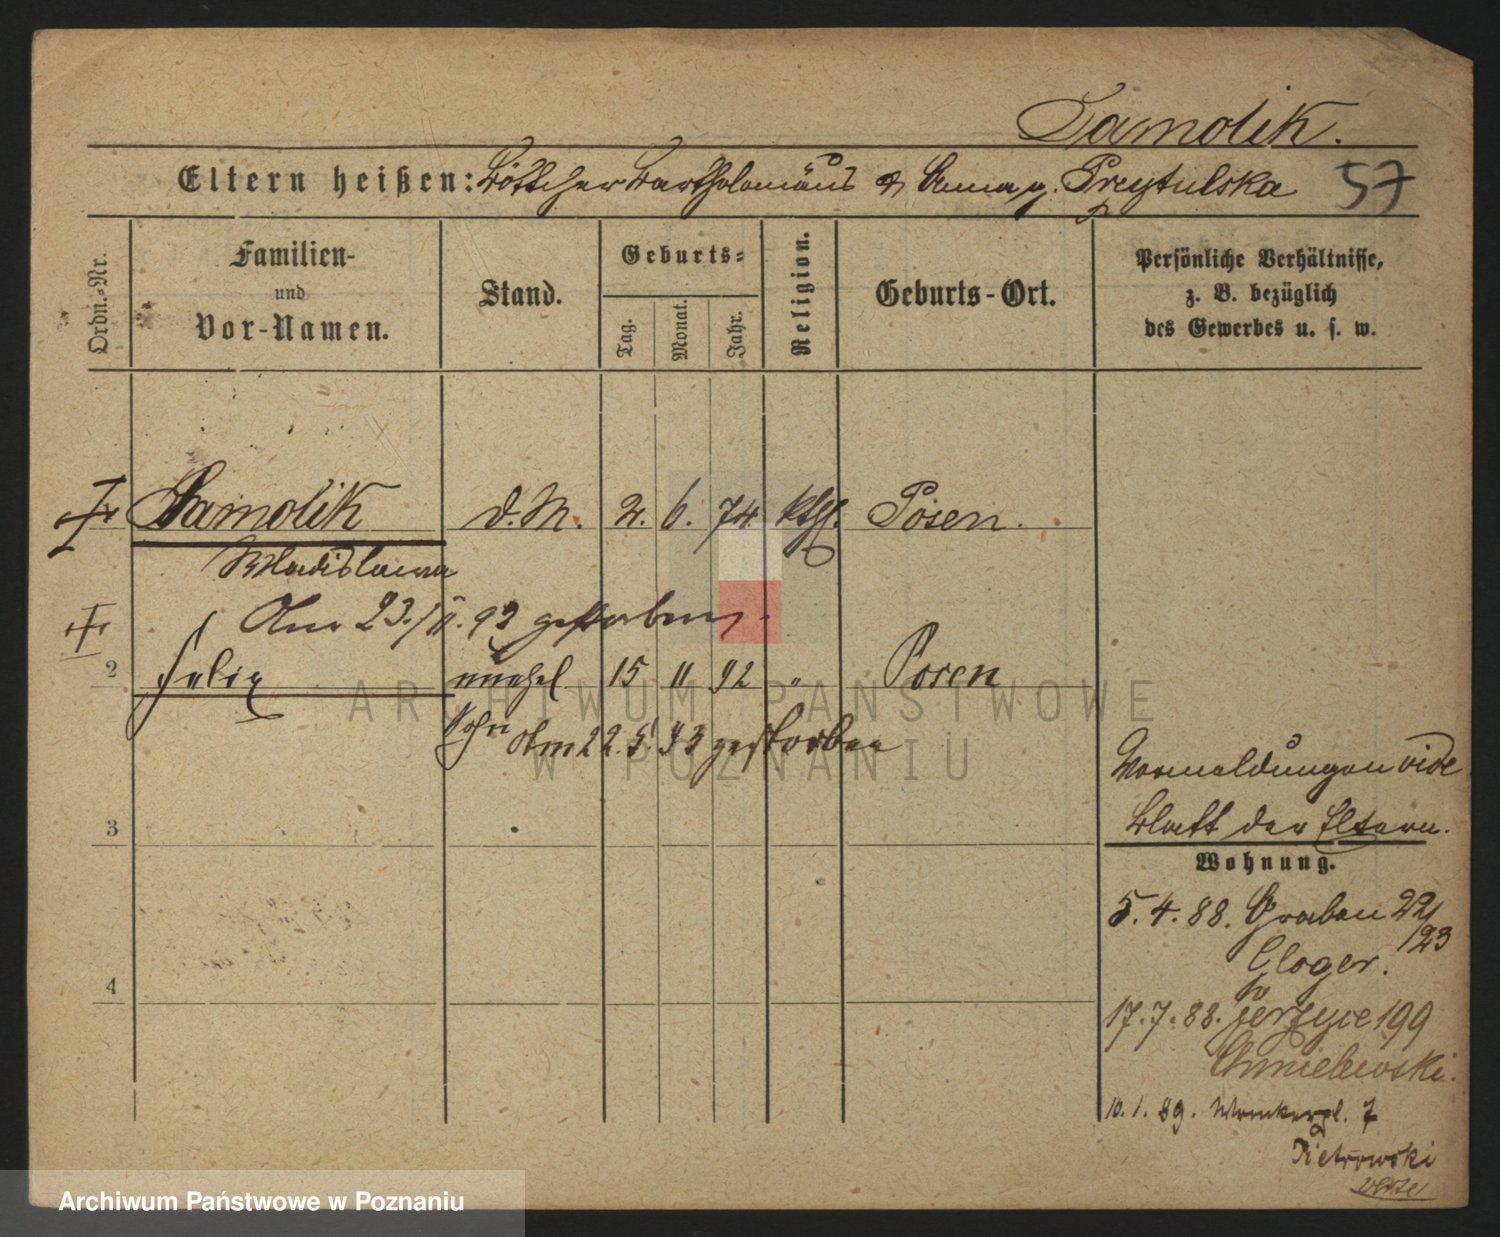 Samolik.
Eltern heißen: Böttcher Bartholomäus & Anna g. Przytulska 57
Ordn.-Nr.
Familien-
und
Vor-Namen.
Stand.
Geburts-
Tag.
Monat.
Jahr.
Religion.
Geburts-Ort.
Persönliche Verhältnisse,
z. B. bezüglich
des Gewerbes u. s. w.
Samolik d. M. 2. 6. 74 kth. Posen.
Wladislawa
Am 23./11. 93 gestorben.
2 Felix unehel 15 11 92 " Posen
Sohn Am 22. 5. 93 gestorben
Vormeldungen vide
Blatt der Eltern.
3
Wohnung.
5. 4. 88. Graben 22/
/23
Gloger.
4
17. 7. 88. Jerzyce 199
Chmielewski.
10. 1. 89. 7
Pietrowski
ARCHIWUM PAŃSTWOWE
W POZNANIU
Archiwum Państwowe w Poznaniu